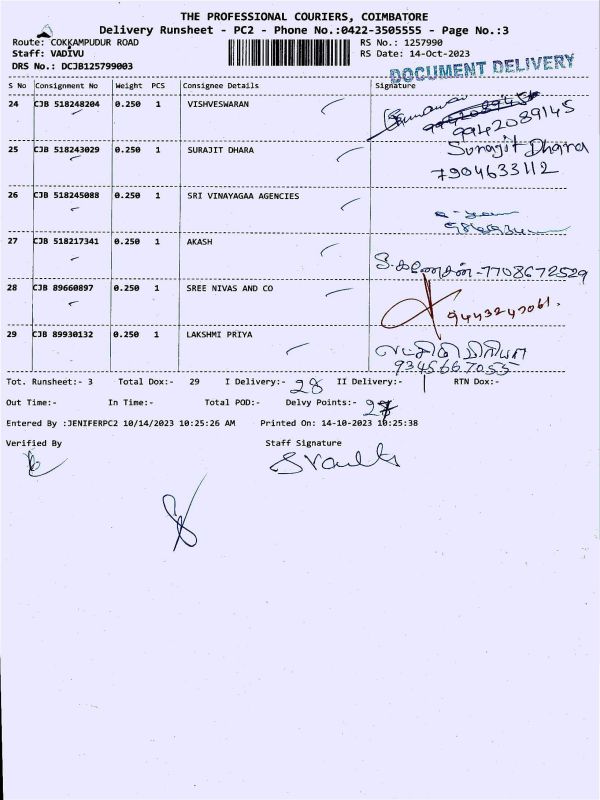 THE PROFESSIONAL COURIERS, COIMBATORE
Delivery Runsheet - PC2 - Phone No.:0422-3505555 - Page No.:3
Route: COKKAMPUDUR ROAD RS No.: 1257990
Staff: VADIVU RS Date: 14-Oct-2023
DRS No.: DCJB125799003
DOCUMENT DELIVERY
S No Consignment No Weight PCS Consignee Details Signature
24 CJB 518248204 0.250 1 VISHVESWARAN
9942089145
25 CJB 518243029 0.250 1 SURAJIT DHARA Surajit Dhara
7904633112
26 CJB 518245088 0.250 1 SRI VINAYAGAA AGENCIES
27 CJB 518217341 0.250 1 AKASH
-7708672529
28 CJB 89660897 0.250 1 SREE NIVAS AND CO
9443247061.
29 CJB 89930132 0.250 1 LAKSHMI PRIYA
9345667055
Tot. Runsheet:- 3 Total Dox:- 29 I Delivery:- 28 II Delivery:- 1 RTN Dox:-
Out Time:- In Time:- Total POD:- Delvy Points:- 27
Entered By :JENIFERPC2 10/14/2023 10:25:26 AM Printed On: 14-10-2023 10:25:38
Verified By Staff Signature